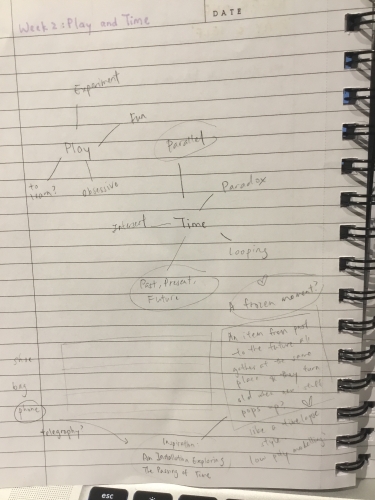 Week 2: Play and Time
DATE
Experiment
Fun
Play
Parallel
to
learn?
obsessive
Paradox
Time
Looping
Past, Present,
Future
A frozen moment?
An item from past
to the future all
gather at the same
place & they turn
old then new until
pops ups
like a timelapse
style
shoe
bag
phone
telegraphy?
Inspiration:
An Installation Exploring
The Passing of Time
esc